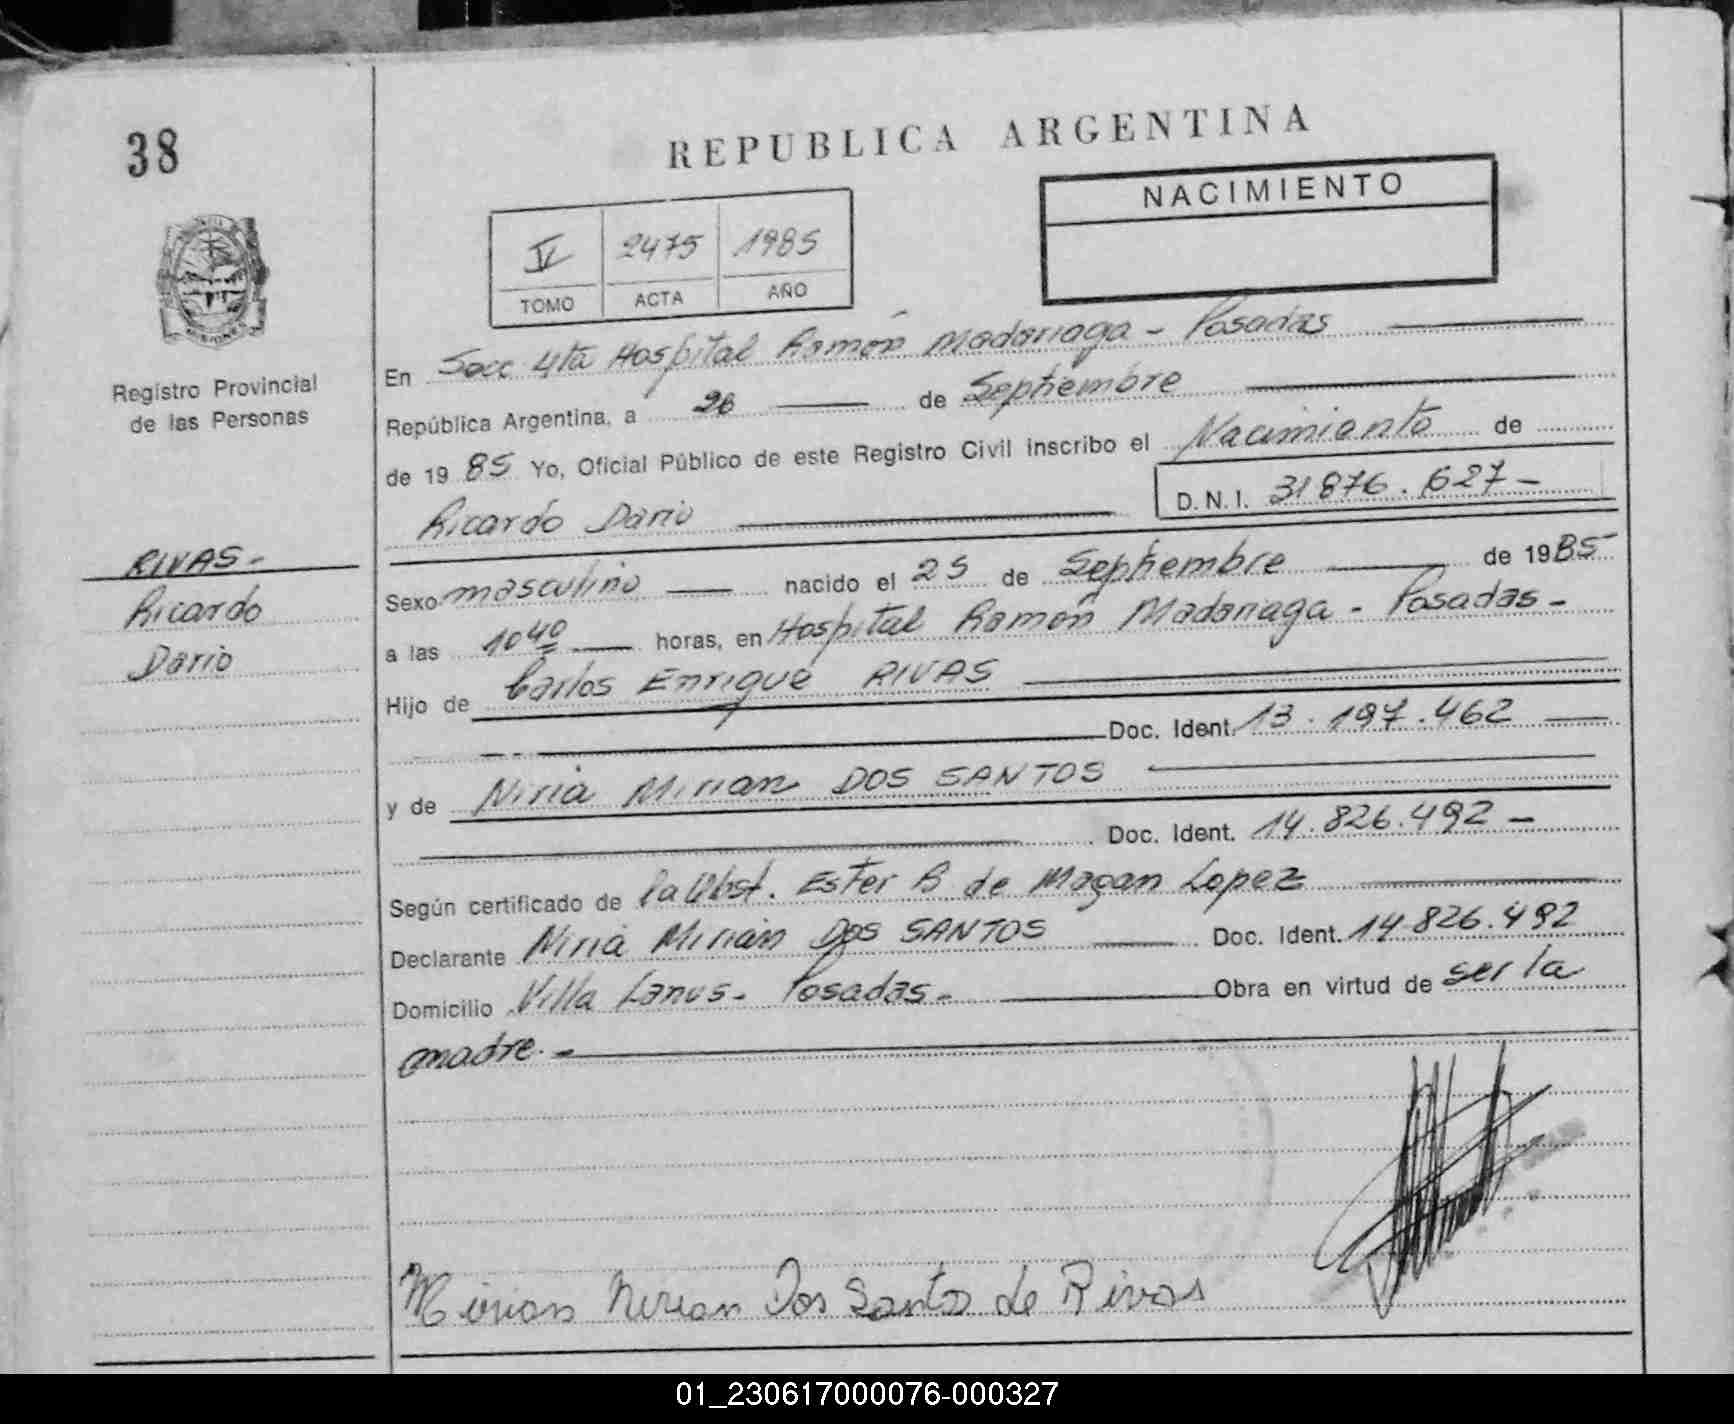 38
REPUBLICA ARGENTINA
NACIMIENTO
IV 2475 1985
TOMO ACTA AÑO
MISIONES
Registro Provincial
de las Personas
RIVAS-
Ricardo
Dario
En Secc 4ta Hospital Ramón Madariaga - Posadas
República Argentina, a 26 de Septiembre
de 1985 Yo, Oficial Público de este Registro Civil inscribo el Nacimiento de
Ricardo Dario D.N.I. 31876.627-
Sexo masculino nacido el 25 de Septiembre de 1985
a las 10 40 horas, en Hospital Ramón Madariaga - Posadas-
Hijo de Carlos Enrique RIVAS
Doc. Ident. 13.197.462
y de Niria Mirian DOS SANTOS
Doc. Ident. 14.826.492-
Según certificado de la Obst. Ester B de Magan Lopez
Declarante Niria Mirian DOS SANTOS Doc. Ident. 14.826.492
Domicilio Villa Lanus- Posadas- Obra en virtud de ser la
madre.-
Mirian Nerian Dos Santos de Rivas
01_230617000076-000327